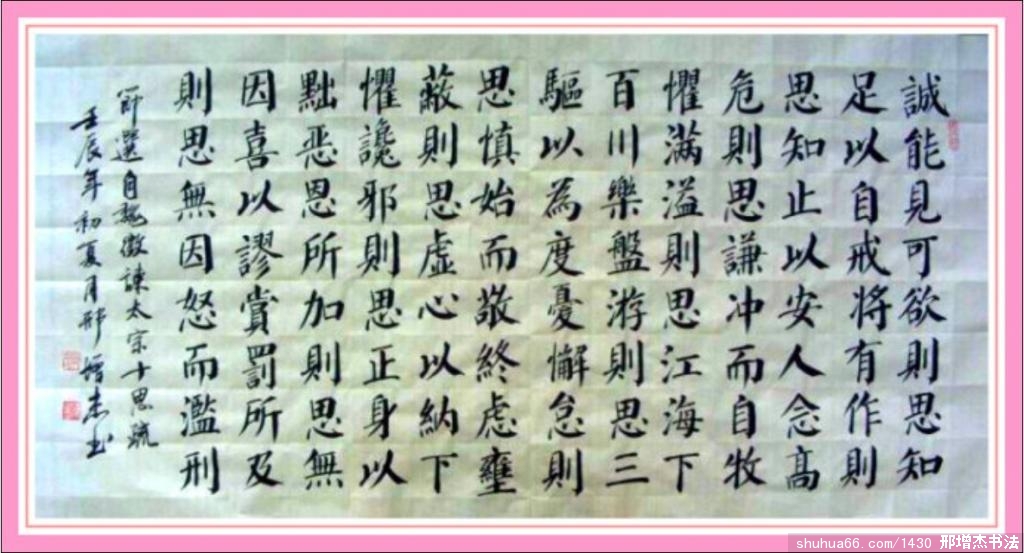 誠能見可欲則思知
足以自戒将有作則
思知止以安人念高
危則思謙冲而自牧
懼滿溢則思江海下
百川樂盤游則思三
驅以為度憂懈怠則
思慎始而敬終慮壅
蔽則思虛心以納下
懼讒邪則思正身以
黜恶恩所加則思無
因喜以謬賞罰所及
則思無因怒而濫刑
節選自魏徵諫太宗十思疏
壬辰年初夏月邢增杰书
shuhua66.com/1430 邢增杰书法